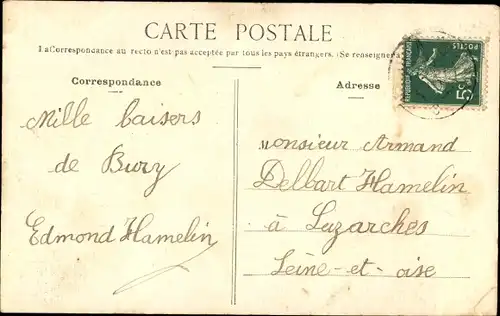 CARTE POSTALE
La Correspondance au recto n'est pas acceptée par tous les pays étrangers. (Se renseigner à
Correspondance
Mille baisers
de Bury
Edmond Hamelin
Adresse
Monsieur Armand
Delbart Hamelin
à Luzarches
Seine-et-oise
REPUBLIQUE FRANÇAISE
POSTES
5c